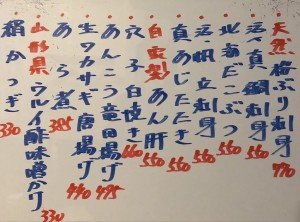 天然 ぶり刺身 770
活〆真鯛刺身 550
北海だこぶつ 550
活帆立刺身 550
真あじたたき 550
自家製 あん肝 550
穴子白焼き 660
あんこう竜田揚げ 495
生ワカサギ唐揚げ 440
あら煮 385
山形県 ウルイ酢味噌がけ 330
絹かつぎ 330